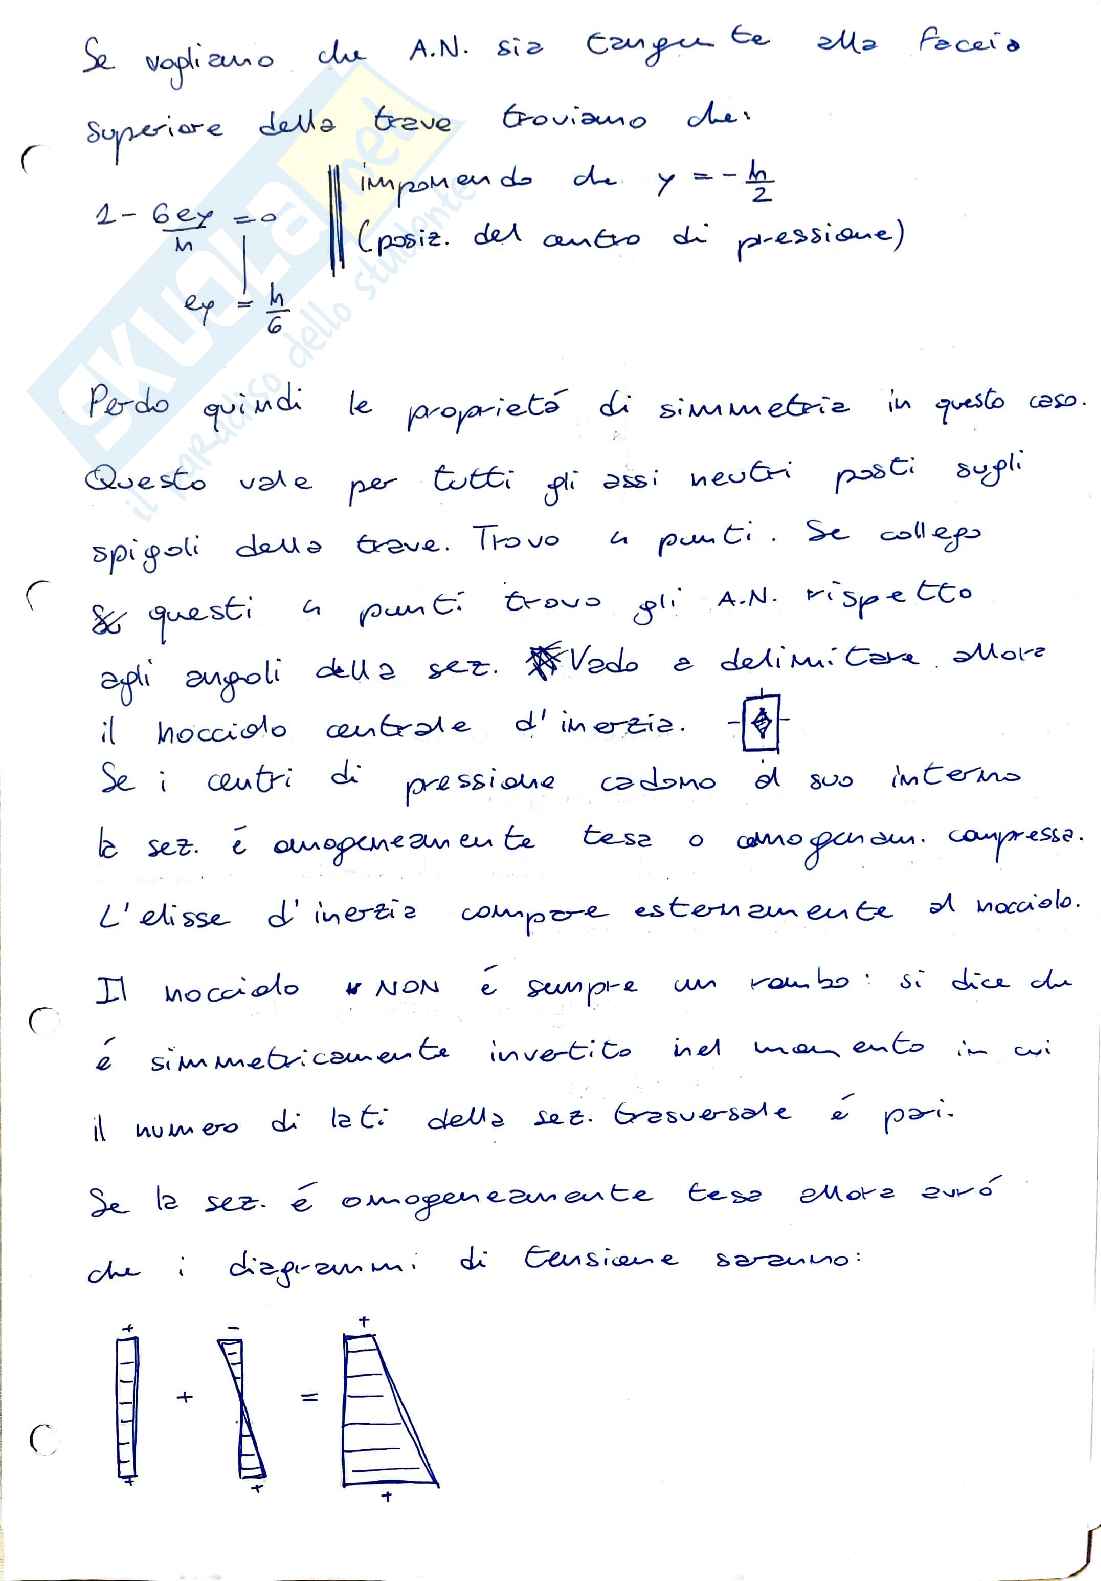 Se vogliamo che A.N. sia tangente alla faccia
superiore della trave troviamo che:
1 - 6ey/h = 0
imponendo che y = - h/2
(posiz. del centro di pressione)
ey = h/6
SKUOLA.net
il paradiso dello studente
Perdo quindi le proprietá di simmetria in questo caso.
Questo vale per tutti gli assi neutri posti sugli
spigoli della trave. Trovo 4 punti. Se collego
questi 4 punti trovo gli A.N. rispetto
agli angoli della sez. Vado a delimitare allora
il nocciolo centrale d'inerzia.
Se i centri di pressione cadono al suo interno
la sez. é omogeneamente tesa o omogenam. compressa.
L'elisse d'inerzia compare esternamente al nocciolo.
Il nocciolo NON é sempre un rombo: si dice che
é simmetricamente invertito nel momento in cui
il numero di lati della sez. trasversale é pari.
Se la sez. é omogeneamente tesa allora avró
che i diagrammi di tensione saranno:
+ - +
+ =
+ + +